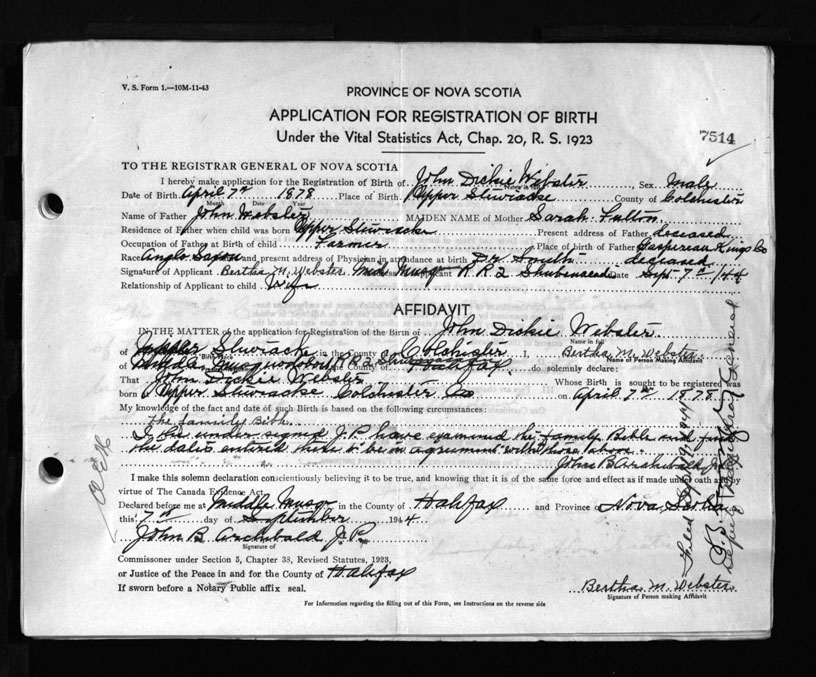 V. S. Form 1.—10M-11-43
PROVINCE OF NOVA SCOTIA
APPLICATION FOR REGISTRATION OF BIRTH
Under the Vital Statistics Act, Chap. 20, R. S. 1923
7514
TO THE REGISTRAR GENERAL OF NOVA SCOTIA
I hereby make application for the Registration of Birth of John Dickie Webster, Sex Male
Name in full
Date of Birth April 7th 1878 Place of Birth Upper Stewiacke County of Colchester
Month Date Year
Name of Father John Webster MAIDEN NAME of Mother Sarah Fulton
Residence of Father when child was born Upper Stewiacke Present address of Father deceased
Occupation of Father at Birth of child Farmer Place of birth of Father Gaspereau Kings Co
Race Anglo Saxon and present address of Physician in attendance at birth Dr Smith deceased
Signature of Applicant Bertha M. Webster Mid. Musqo R R 2 Shubenacadie Date Sept 7th /44
Relationship of Applicant to child Wife
AFFIDAVIT
IN THE MATTER of the application for Registration of the Birth of John Dickie Webster
Name in full
of Stewiacke in the County of Colchester I, Bertha M. Webster
Birth Place
Name of Person Making Affidavit
of Middle Musquodoboit R R 2 Halifax. do solemnly declare:
That John Dickie Webster Whose Birth is sought to be registered was
born Upper Stewiacke Colchester Co on April 7th 1878.
My knowledge of the fact and date of such Birth is based on the following circumstances:
The family Bible
I the under signed J.P. have examined the family Bible and find
the dates entered there to be in agreement with those above.
John B Archibald J.P.
I make this solemn declaration conscientiously believing it to be true, and knowing that it is of the same force and effect as if made under oath and by
virtue of The Canada Evidence Act.
Declared before me at Middle Musqo in the County of Halifax and Province of Nova Scotia
this 7th day of September 1944
John B Archibald J.P.
Signature of
Commissoner under Section 5, Chapter 38, Revised Statutes, 1923,
or Justice of the Peace in and for the County of Halifax
If sworn before a Notary Public affix seal.
Bertha M. Webster
Signature of Person making Affidavit
For Information regarding the filling out of this Form, see Instructions on the reverse side
Filed Sept 1944
Deputy Registrar General